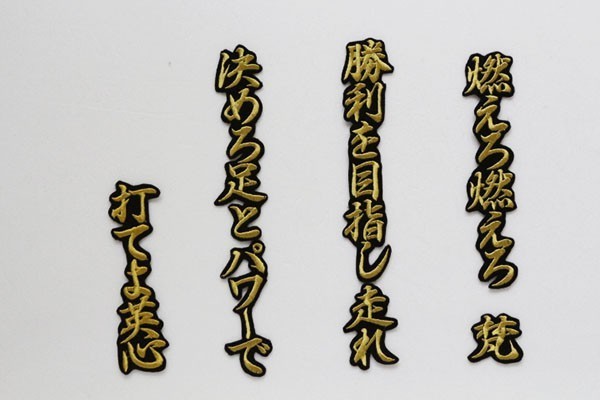 燃えろ燃えろ 梵
勝利を目指し走れ
決めろ足とパワーで
打てよ英心